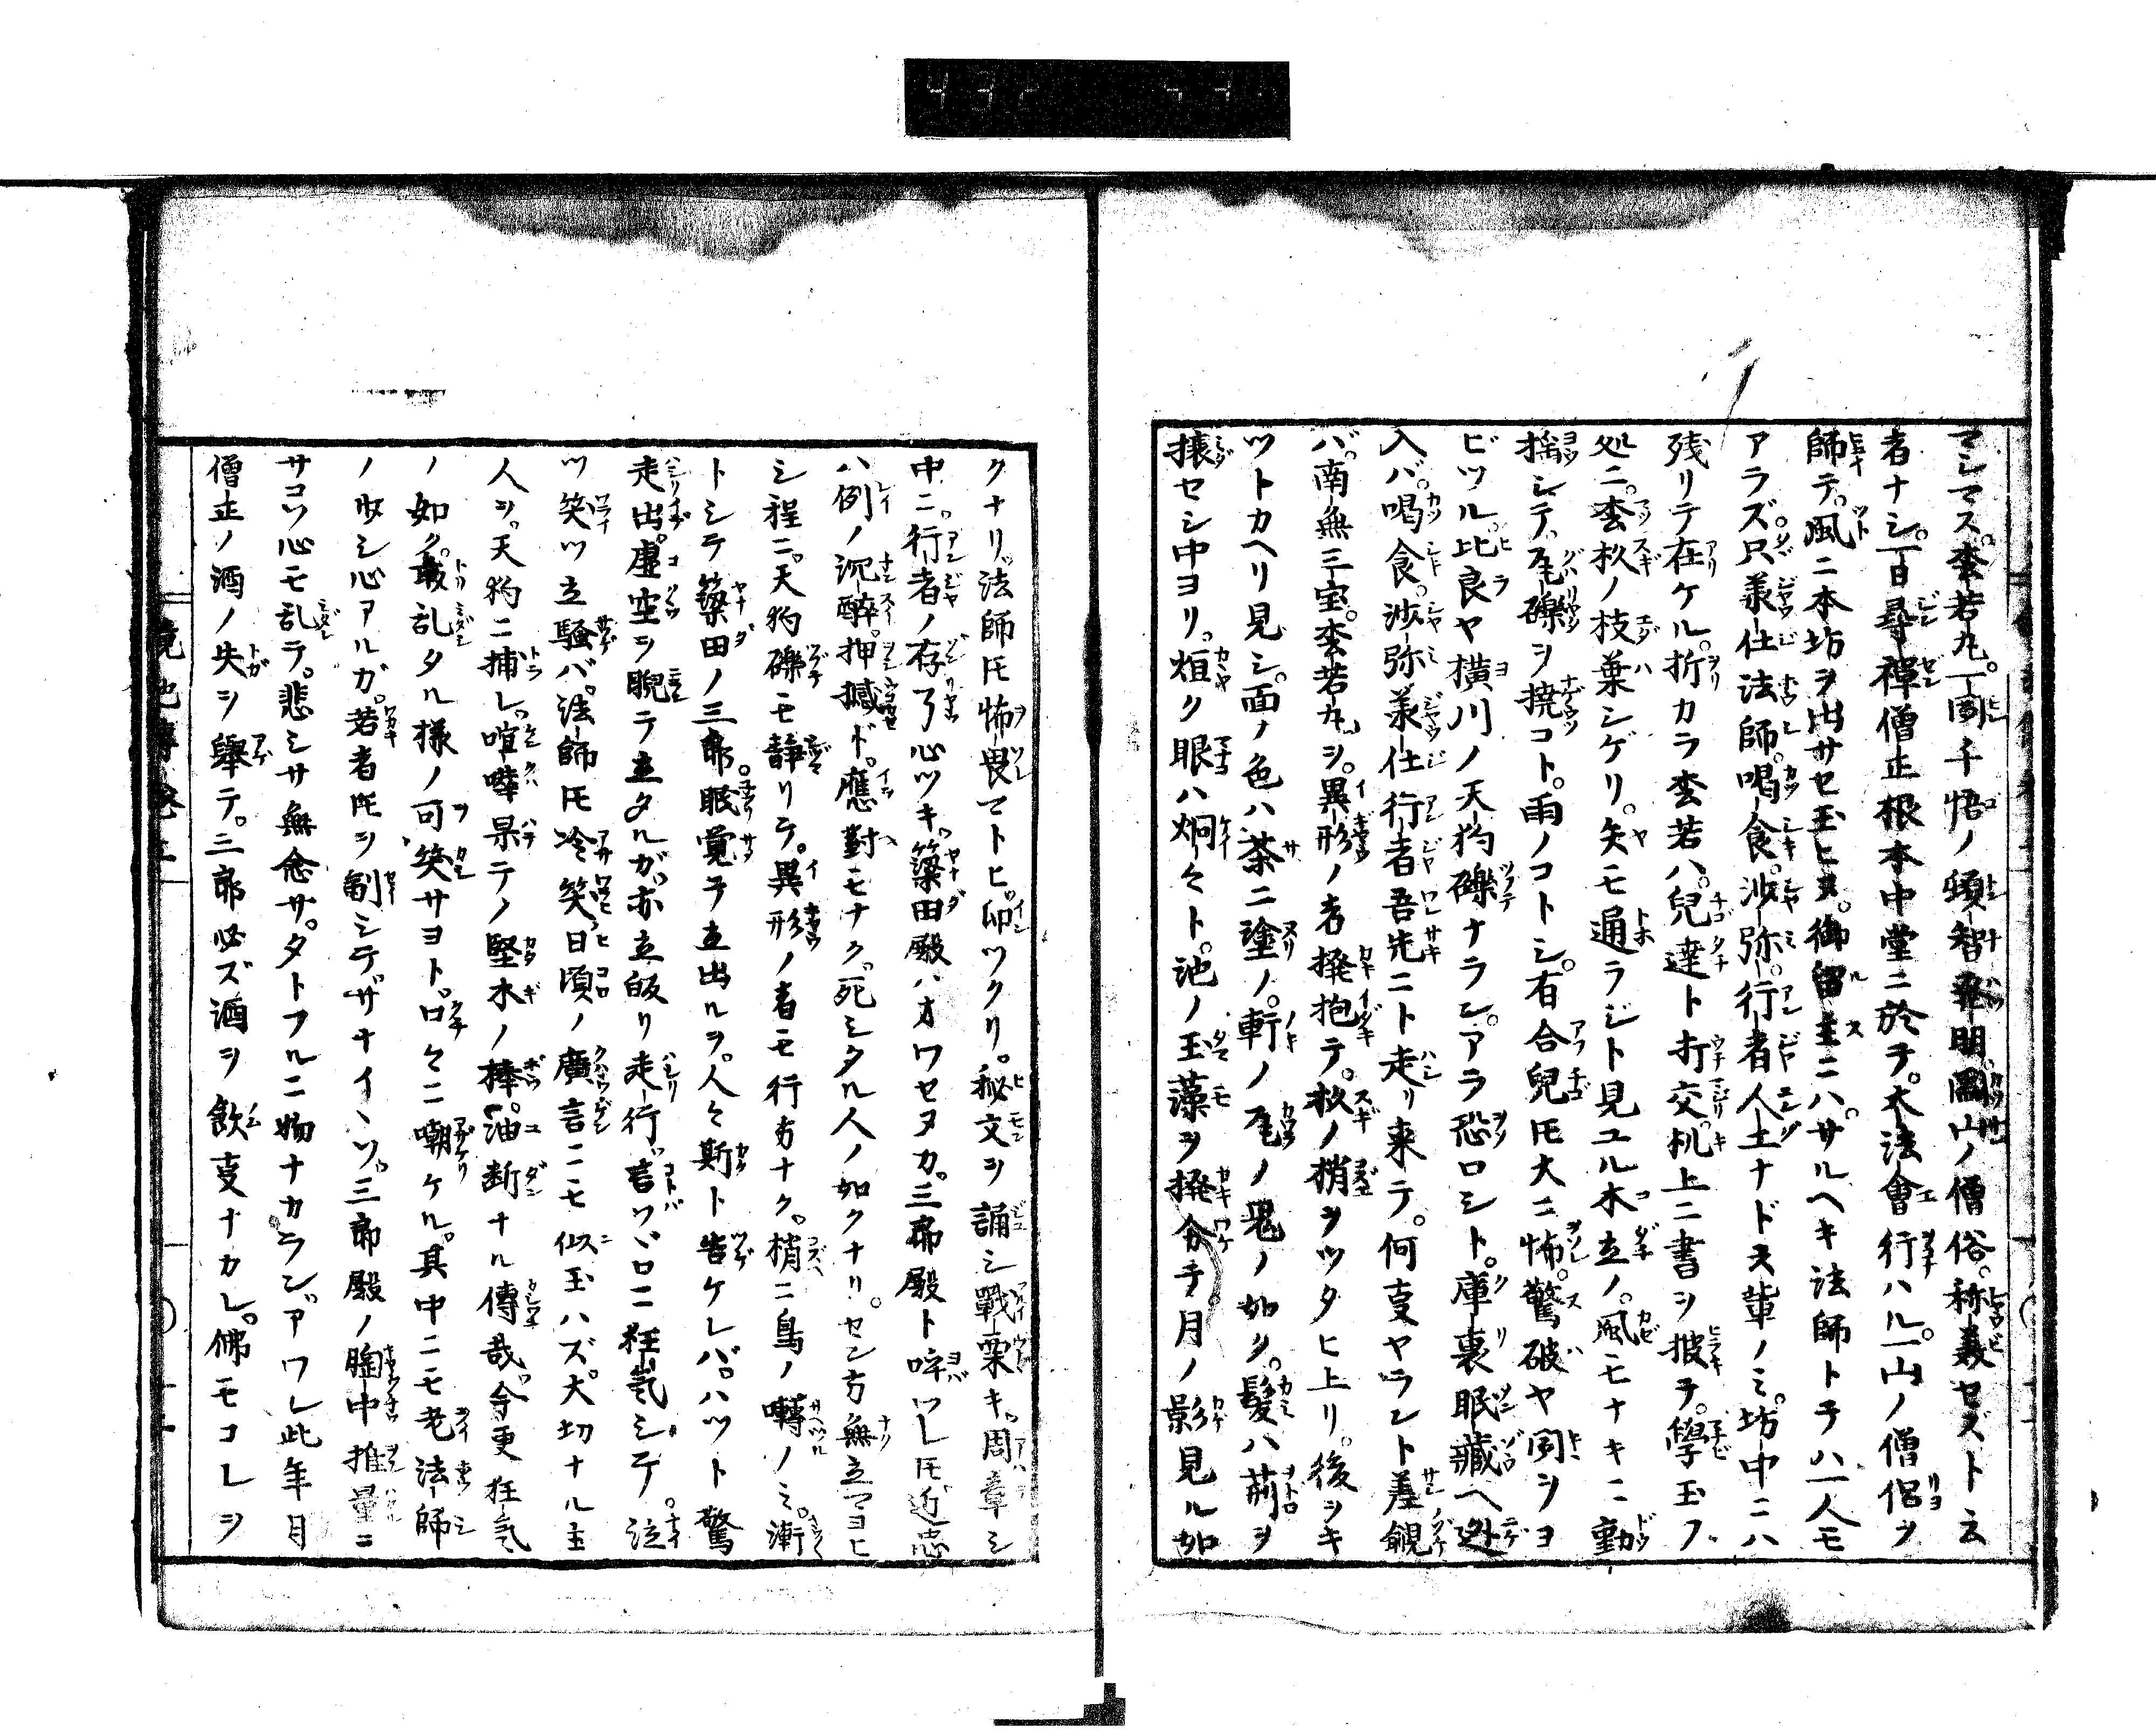 マシマス。枩若丸。一聞千悟ノ頴智発明。闔山ノ僧俗。称羡セズト云
者ナシ。一日尋禪僧正根本中堂ニ於テ。大法會行ハル。一山ノ僧侶ヲ
師テ。風ニ本坊ヲ出サセ玉ヒヌ。御留主ニハ。サルヘキ法師トテハ一人モ
アラズ。只義仕法師。喝食。沙弥。行者人士ナドヌ輩ノミ。坊中ニハ
残リテ在ケル。折カラ枩若ハ。兒達ト打交。机上ニ書ヲ披テ。學玉フ
処ニ。枩杉ノ枝葉シゲリ。矢モ通ラジト見ユル木立ノ。風モナキニ動
揺シテ。瓦礫ヲ擲コト。雨ノコトシ。有合兒𪜈大ニ怖。驚破ヤ聞ヲヨ
ビツル。比良ヤ横川ノ天狗礫ナラン。アラ恐ロシト。庫裏眠藏ヘ迯
入バ。喝食。沙弥義仕行者吾先ニト走リ来テ。何支ヤラント差覗
バ。南無三宝。枩若丸ヲ。異形ノ者撥抱テ。杉ノ梢ヲツタヒ上リ。後ヲキ
ツトカヘリ見シ。面ノ色ハ茶ニ塗ノ。軒ノ瓦ノ鬼ノ如ク。髪ハ荊ヲ
攘セシ中ヨリ。烜ク眼ハ炯々ト。池ノ玉藻ヲ撥分テ。月ノ影見ル如
クナリ。法師𪜈怖畏マトヒ。印ツクリ。秘文ヲ誦シ戰栗キ。周章シ
中ニ。行者ノ存了心ツキ。簗田殿ハオワセヌカ。三郎殿ト呼ツレ𪜈近恋
ハ例ノ沉醉。押撼ド。應對モナク。死シタル人ノ如クナリ。セン方無立マヨヒ
シ程ニ。天狗礫モ静リテ。異形ノ者モ行方ナク。梢ニ鳥ノ囀ノミ。漸
トシテ簗田ノ三郎。眠覚テ立出ルヲ。人々斯ト告ケレバ。ハツト驚
走出。虚空ヲ睨テ立タルガ。亦立皈リ走行。言ソヾロニ狂氣シテ。泣
ツ笑ツ立騒バ。法師𪜈冷笑。日頃ノ廣言ニモ似玉ハズ。大切ナル主
人ヲ。天狗ニ捕レ。喧嘩果テノ堅木ノ棒。油断ナル傳哉。今更狂氣
ノ如ク。取乱タル樣ノ可笑サヨト。口々ニ嘲ケル。其中ニモ老法師
ノ少シ心アルガ。若者𪜈ヲ制シテ。ザナイヽソ。三郎殿ノ胸中推量ニ
サコソ心モ乱テ。悲シサ無念サ。タトフルニ物ナカラン。アワレ此年月
僧正ノ酒ノ失ヲ擧テ。三郎必ズ酒ヲ飲支ナカレ。佛モコレヲ